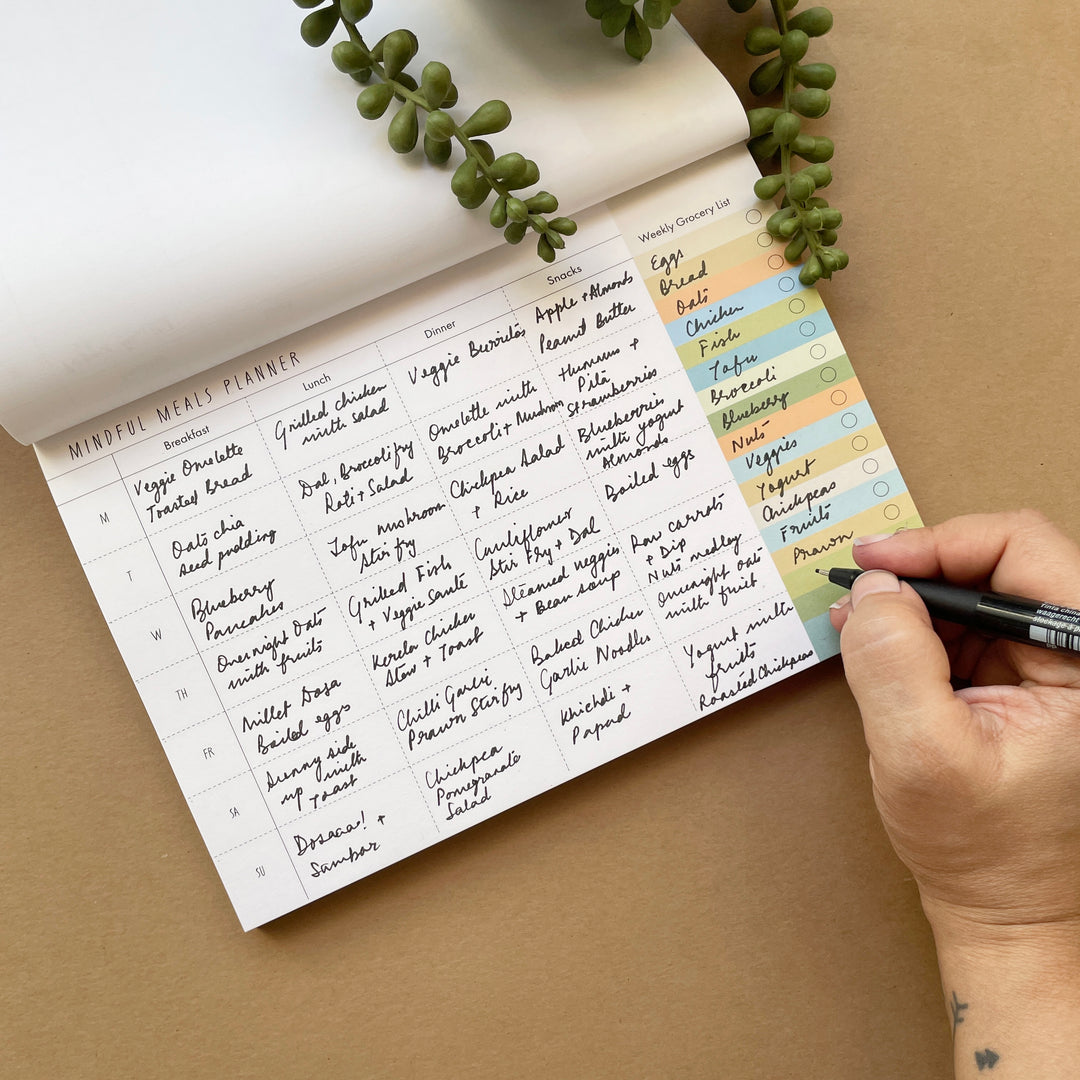 MINDFUL MEALS PLANNER
Breakfast
Lunch
Dinner
Snacks
M
Veggie Omelette
Toasted Bread
Grilled chicken
with salad
Veggie Burritos
Apple + Almonds
Peanut Butter
T
Oats chia
seed pudding
Dal, Broccoli fry
Roti + Salad
Omelette with
Broccoli + Mushroom
Hummus +
Pita
Strawberries
W
Blueberry
Pancakes
Tofu mushroom
Stir fry
Chickpea Salad
+ Rice
Blueberries
with yogurt
Almonds
TH
Overnight Oats
with fruits
Grilled Fish
+ Veggie Saute
Cauliflower
Stir Fry + Dal
Boiled eggs
FR
Millet Dosa
Boiled eggs
Kerela Chicken
Stew + Toast
Steamed veggies
+ Bean soup
Raw carrots
+ Dip
Nuts medley
SA
Sunny side
up with
Toast
Chilli Garlic
Prawn Stirfry
Baked Chicken
Garlic Noodles
Overnight oats
with fruit
SU
Dosaaa! +
Sambar
Chickpea
Pomegranate
Salad
Khichdi +
Papad
Yogurt with
fruits
Roasted Chickpeas
Weekly Grocery List
Eggs
Bread
Oats
Chicken
Fish
Tofu
Broccoli
Blueberry
Nuts
Veggies
Yogurt
Chickpeas
Fruits
Prawn
Tinta
waagerecht